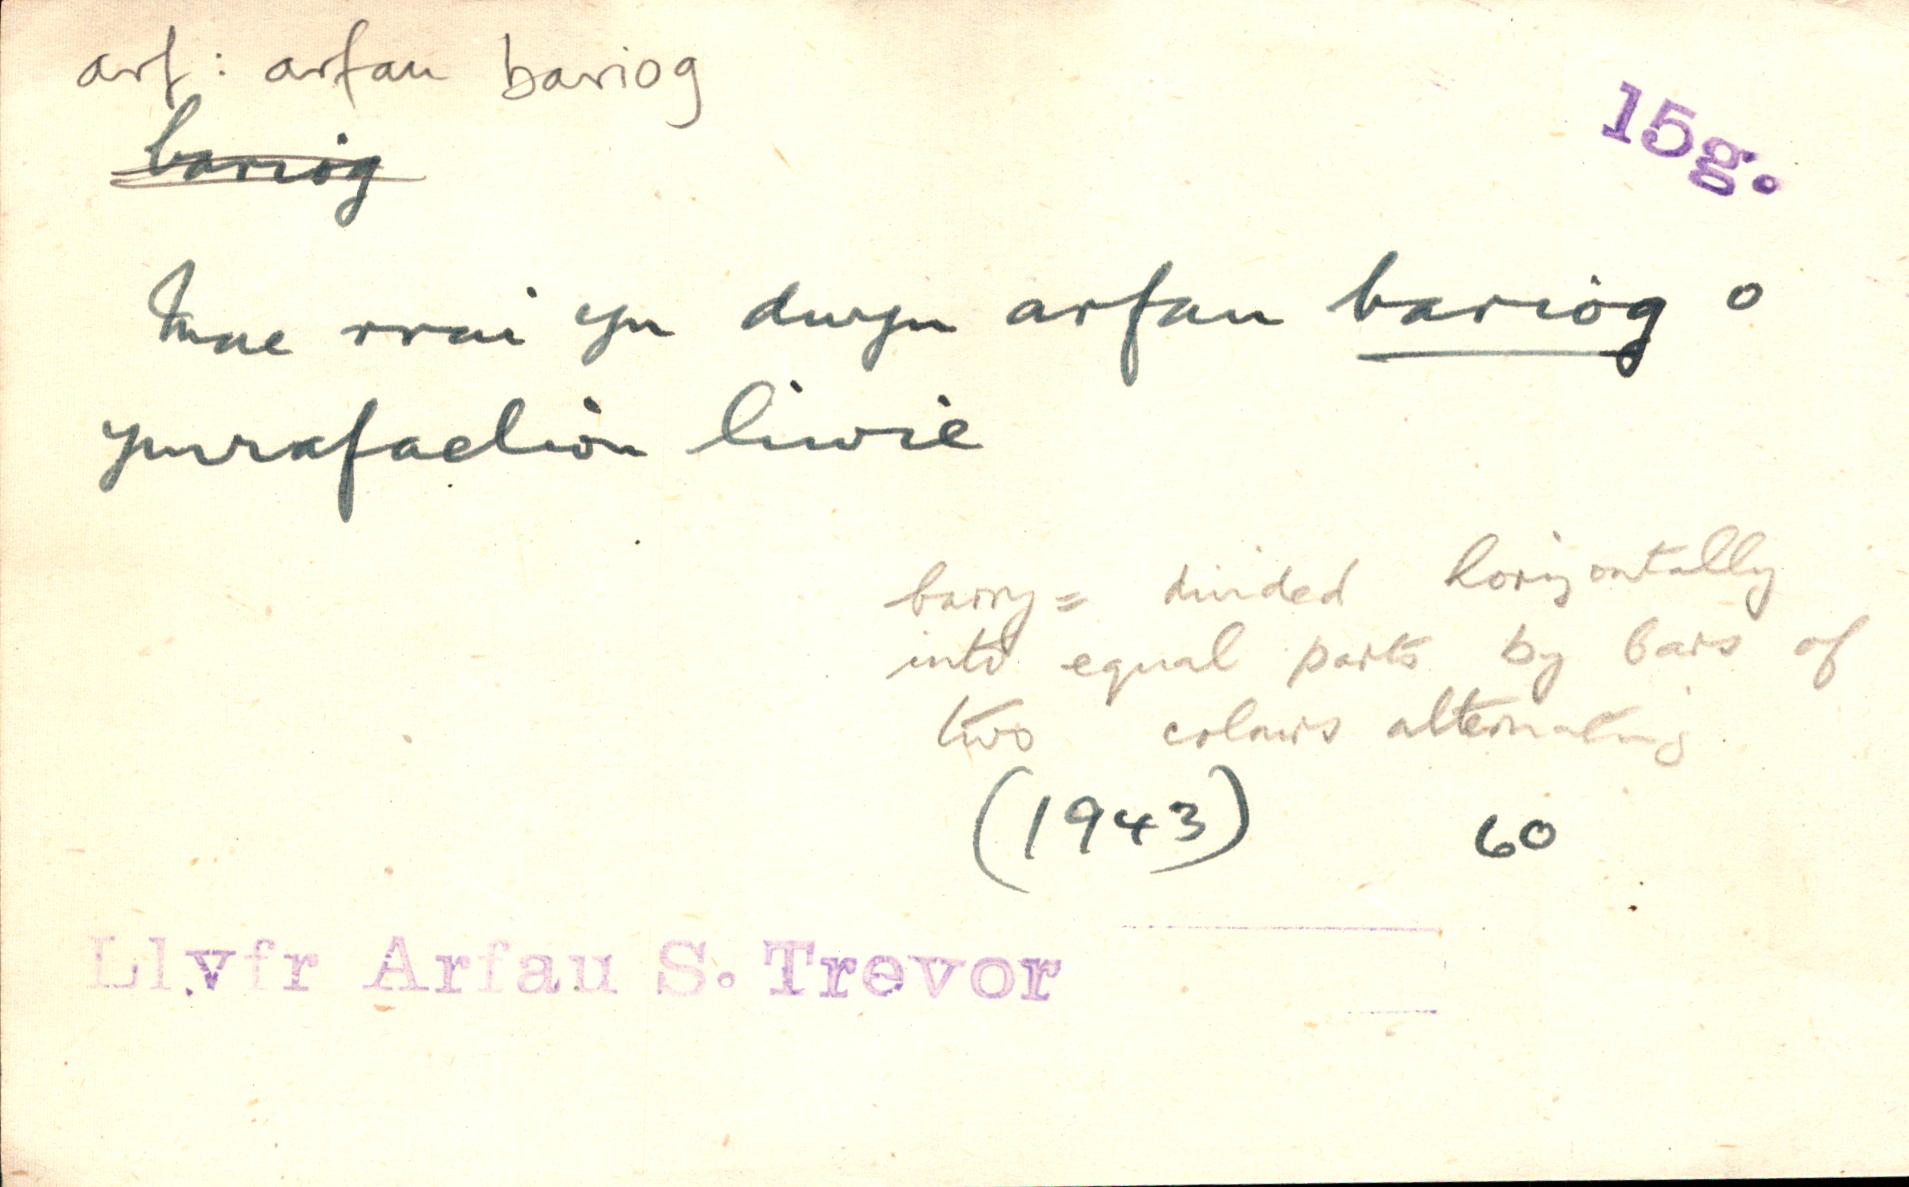 arf: arfau bariog
bariog
15g.
Mae rrai yn dwyn arfau bariog o
ymrafaelion liwie
barry = divided horizontally
into equal parts by bars of
two colours alternating
(1943) 60
Llyfr Arfau S. Trevor